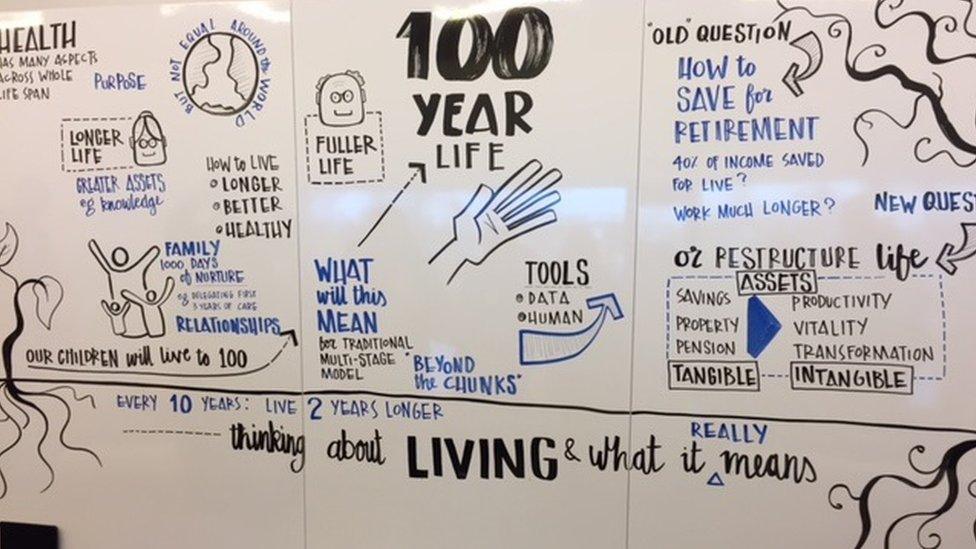 HEALTH
HAS MANY ASPECTS
ACROSS WHOLE
LIFE SPAN
PURPOSE
BUT NOT EQUAL AROUND the WORLD
LONGER
LIFE
GREATER ASSETS
eg knowledge
HOW to LIVE
LONGER
BETTER
HEALTHY
FAMILY
1000 DAYS
of NURTURE
eg DELEGATING FIRST
3 YEARS OF CARE
RELATIONSHIPS
OUR CHILDREN will LIVE to 100
100
YEAR
LIFE
FULLER
LIFE
WHAT
will this
MEAN
for TRADITIONAL
MULTI-STAGE
MODEL
"BEYOND
the CHUNKS"
TOOLS
DATA
HUMAN
"OLD" QUESTION
HOW to
SAVE for
RETIREMENT
40% OF INCOME SAVED
FOR LIVE?
WORK MUCH LONGER?
NEW QUEST
or RESTRUCTURE life
ASSETS
SAVINGS
PROPERTY
PENSION
TANGIBLE
PRODUCTIVITY
VITALITY
TRANSFORMATION
INTANGIBLE
EVERY 10 YEARS: LIVE 2 YEARS LONGER
thinking about LIVING & what it REALLY means